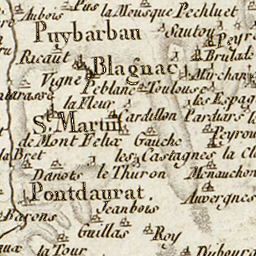 Aubois
Pus la Mousque Pechluet
Puybarban
Sautou
Peyre
Ricaut
Blagnac
Brulale
Vigne
Marchan
Peblanc
Toulouse
la Fleur
les Espag
S. Martin
Cardillon
Pardiars
de Mont Felix
Gauche
Peyrou
la Bret
les Castagnes
la Cl
Danots
le Thuron
Menauchon
Pontdaurat
Auvergnes
Jeanbois
Barons
Guillas
Roy
la Tour
Dubourg